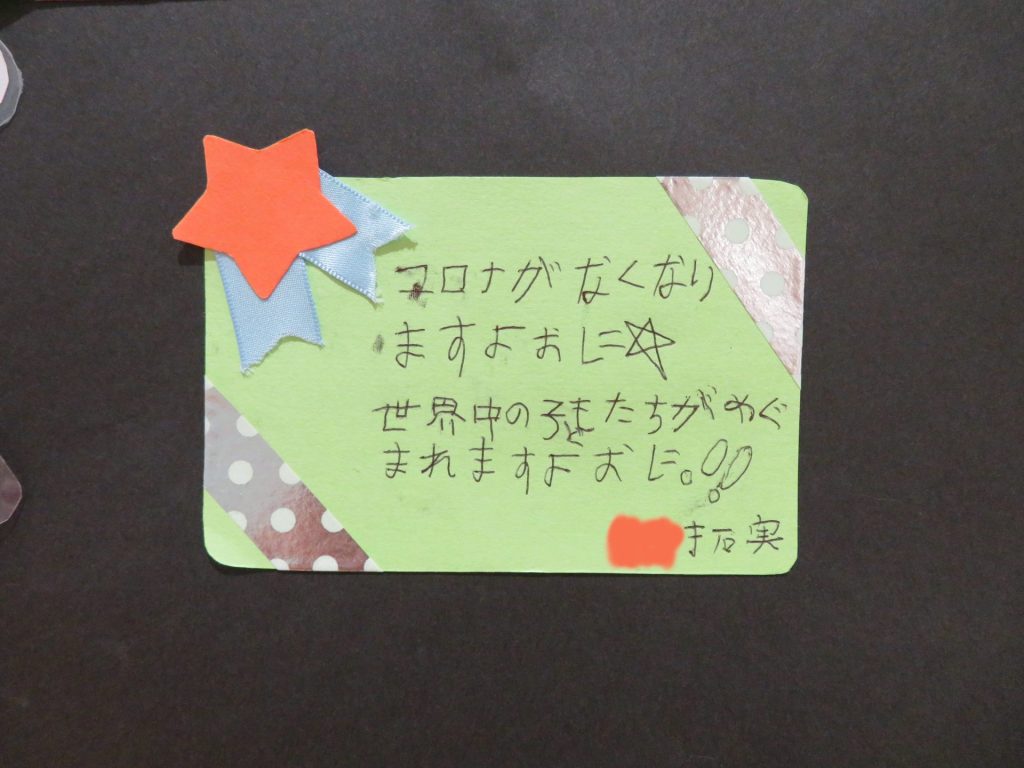 コロナがなくなり
ますよおに☆
世界中の子どもたちがめぐ
まれますよおに。!!
拓実